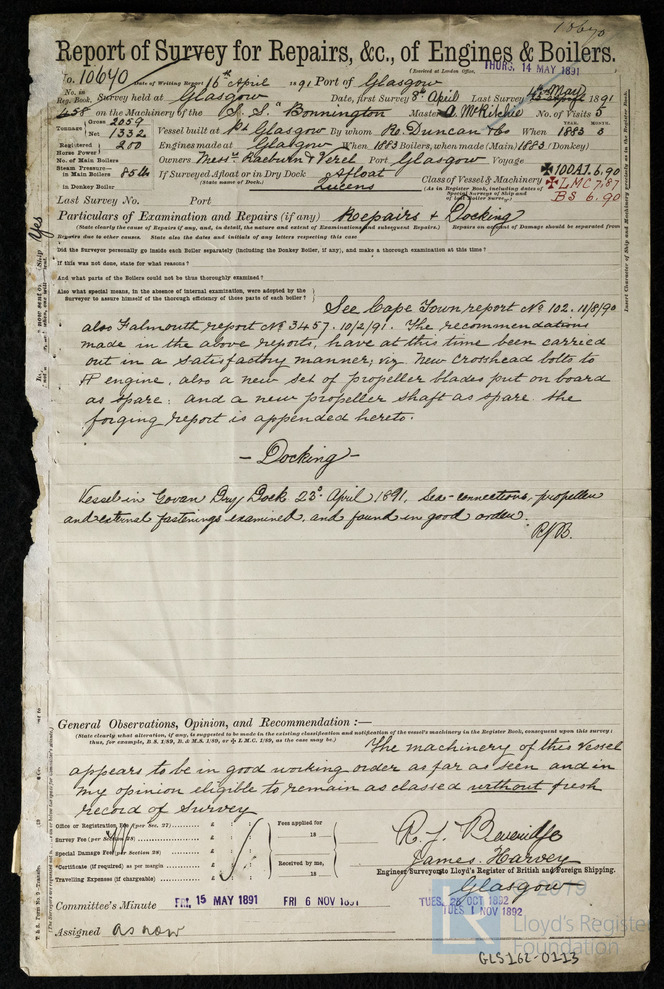 10670
Report of Survey for Repairs, &c., of Engines & Boilers.
(Received at London Office, THURS. 14 MAY 1891
No. 10640 Date of Writing Report 16th April 1891 Port of Glasgow
No. in Reg. Book. Survey held at Glasgow Date, first Survey 8th April Last Survey 1891
458 on the Machinery of the S.S. "Bonnington" Master A. McRitchie No. of Visits 5
Tonnage Gross 2059 Net 1332 Vessel built at Pt Glasgow By whom Ro. Duncan & Co When 1883 3
Registered Horse Power 200 Engines made at Glasgow When 1883 Boilers, when made (Main) 1883 (Donkey)
No. of Main Boilers Owners Messrs Raeburn & Verel Port Glasgow Voyage
Steam Pressure in Main Boilers 85 lb If Surveyed Afloat or in Dry Dock Afloat Class of Vessel & Machinery 100A1. 6.90
in Donkey Boiler (State name of Dock.) (As in Register Book, including dates of Special Surveys of Ship and of last Boiler Survey.) LMC 7.87
BS 6.90
Last Survey No. Port
Particulars of Examination and Repairs (if any) Repairs & Docking
(State clearly the cause of Repairs if any, and, in detail, the nature and extent of Examinations and subsequent Repairs.) Repairs on account of Damage should be separated from
Repairs due to other causes. State also the dates and initials of any letters respecting this case
Did the Surveyor personally go inside each Boiler separately (including the Donkey Boiler, if any), and make a thorough examination at this time?
If this was not done, state for what reasons?
And what parts of the Boilers could not be thus thoroughly examined?
Also what special means, in the absence of internal examination, were adopted by the
Surveyor to assure himself of the thorough efficiency of those parts of each boiler?
See Cape Town report No 102. 11/8/90
also Falmouth report No 3457. 10/2/91. The recommendations
made in the above reports, have at this time been carried
out in a satisfactory manner; viz new crosshead bolts to
HP engine, also a new set of propeller blades put on board
as spare: and a new propeller shaft as spare. the
forging report is appended hereto.
- Docking -
Vessel in Govan Dry Dock 23d April 1891, Sea-connections, propeller
and external fastenings examined, and found in good order.
RJB.
General Observations, Opinion, and Recommendation :—
(State clearly what alteration, if any, is suggested to be made in the existing classification and notification of the vessel's machinery in the Register Book, consequent upon this survey;
thus, for example, B.S. 1/89, B.&M.S. 1/89, or L.M.C. 1/89, as the case may be.)
The machinery of this vessel
appears to be in good working order as far as seen and in
my opinion eligible to remain as classed without fresh
record of Survey
Office or Registration Fee (per Sec. 27) £ Fees applied for
Survey Fee (per Section 28) £ 18
Special Damage Fee (per Section 28) £
*Certificate (if required) as per margin £ Received by me,
Travelling Expenses (if chargeable) £ 18
R. J. Beveridge
James Harvey
Engineer Surveyors to Lloyd's Register of British and Foreign Shipping.
Glasgow
Committee's Minute FRI. 15 MAY 1891 FRI 6 NOV 1891 TUES. 25 OCT 1892
TUES 1 NOV 1892
Assigned as now
2019
Lloyd's Register
Foundation
GLS162-0113
Yes
Insert Character of Ship and Machinery precisely as in the Register Book.